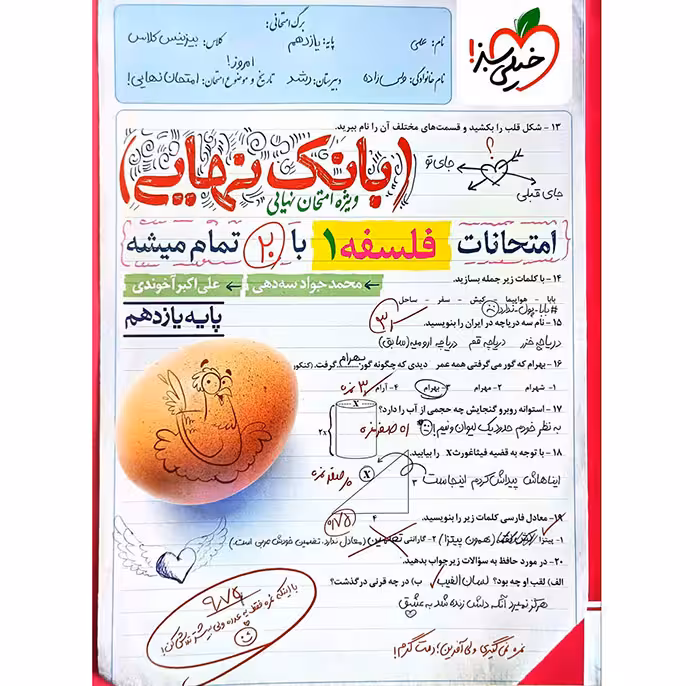 برگ امتحانی:
نام: علی
پایه: یازدهم
کلاس: بیزینس کلاس
نام خانوادگی: ولی زاده
دبیرستان: رشد
تاریخ و موضوع امتحان: امروز! امتحان نهایی!
خیلی سبز!
۱۳ - شکل قلب را بکشید و قسمت‌های مختلف آن را نام ببرید.
؟
جای تو
جای قبلی
(بانک نهایی)
ویژه امتحان نهایی
امتحانات فلسفه ۱ با ۲۰ تمام میشه
محمدجواد سه‌دهی
علی‌اکبر آخوندی
پایه یازدهم
۱۴ - با کلمات زیر جمله بسازید.
بابا - هواپیما - کیش - سفر - ساحل
#بابا_پول_ندارد
۱۵ - نام سه دریاچه در ایران را بنویسید.
دریاچه خزر دریاچه قم دریاچه ارومیه (سابق)
۱۶ - بهرام که گور می‌گرفتی همه عمر دیدی که چگونه گور بهرام گرفت. (کنکور
۱- شهرام ۲- مهرام ۳- بهرام ۴- آرام
۳ نمره
۱۷ - استوانه روبرو گنجایش چه حجمی از آب را دارد؟
X
2X
به نظر خودم حدود یک لیوان و نیم!
۱۸ - با توجه به قضیه فیثاغورث X را بیابید.
X
۳
۴
ایناهاش پیداش کردم اینجاست
۰/۷۵
۱۹ - معادل فارسی کلمات زیر را بنویسید.
۱- پیتزا (همون پیتزا) ۲- گارانتی تضمین (معادل ندارد. تضمین خودش عربی است.)
۲۰ - در مورد حافظ به سؤالات زیر جواب بدهید.
الف) لقب او چه بود؟ لسان الغیب ب) در چه قرنی درگذشت؟
هرگز نمیرد آنکه دلش زنده شد به عشق
۹/۷۵
نمره نمی‌گیری ولی آفرین؛ دمت گرم!